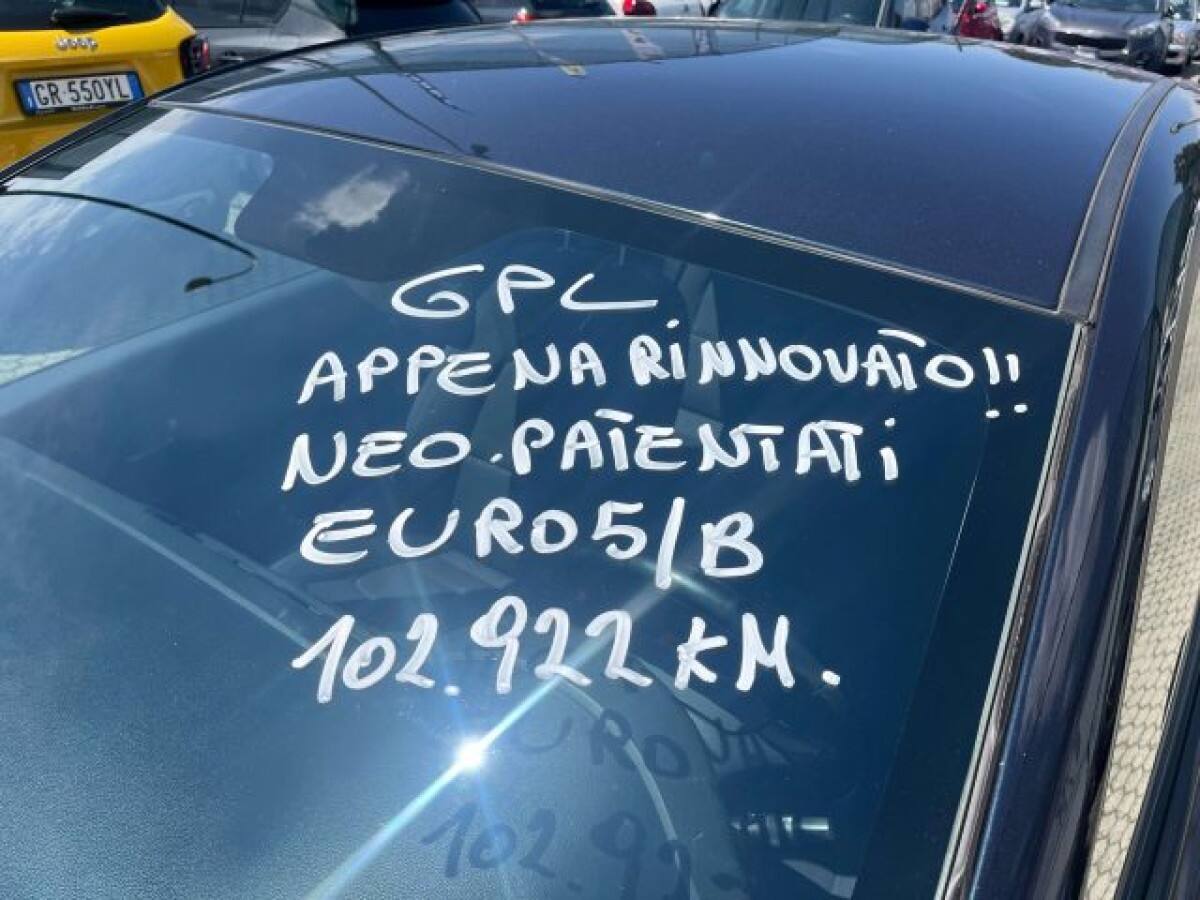 Jeep
GR 550YL
GPL
APPENA RINNOVATO!!
NEO-PATENTATI
EURO5/B
102.922 KM.